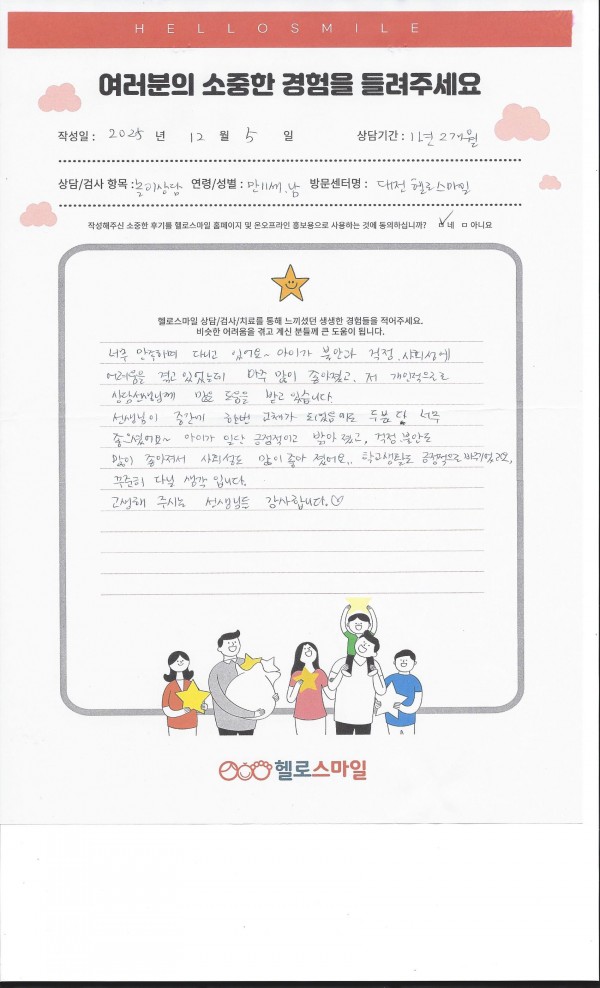 HELLOSMILE
여러분의 소중한 경험을 들려주세요
작성일 : 2025 년 12 월 5 일 상담기간 : 1년 2개월
상담/검사 항목 : 놀이상담 연령/성별 : 만11세, 남 방문센터명 : 대전 헬로스마일
작성해주신 소중한 후기를 헬로스마일 홈페이지 및 온오프라인 홍보용으로 사용하는 것에 동의하십니까? ㅁ 네 ㅁ 아니요
헬로스마일 상담/검사/치료를 통해 느끼셨던 생생한 경험들을 적어주세요.
비슷한 어려움을 겪고 계신 분들께 큰 도움이 됩니다.
너무 만족하며 다니고 있어요~ 아이가 불안과 걱정, 사회성에
어려움을 겪고 있었는데 아주 많이 좋아졌고, 저 개인적으로도
상담선생님께 많은 도움을 받고 있습니다.
선생님이 중간에 한번 교체가 되었음에도 두분 다 너무
좋으셨어요~ 아이가 일단 긍정적이고 밝아졌고, 걱정, 불안도
많이 좋아져서 사회성도 많이 좋아 졌어요.. 학교생활도 긍정적으로 바뀌었고요,
꾸준히 다닐 생각 입니다.
고생해 주시는 선생님들 감사합니다.♡
헬로스마일